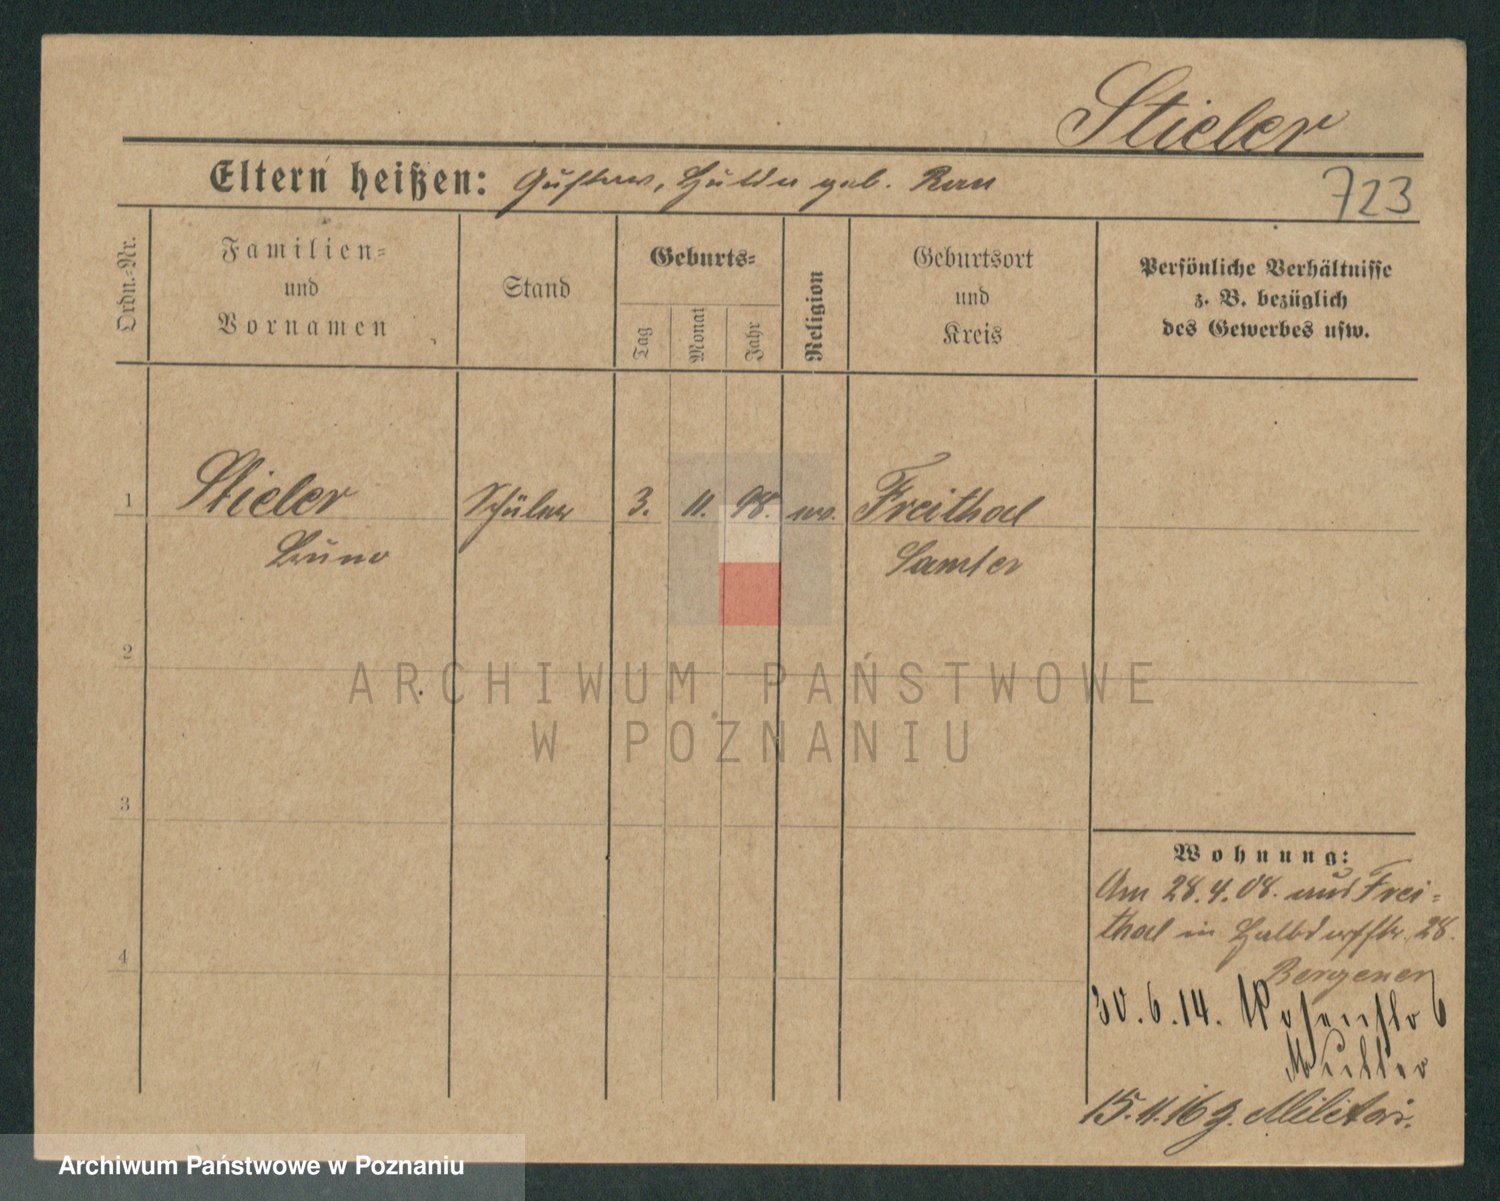 Stieler
Eltern heißen: Gustav, Hulda geb. Rau
723
Ordn.-Nr.
Familien=
und
Vornamen
Stand
Geburts=
Tag
Monat
Jahr
Religion
Geburtsort
und
Kreis
Persönliche Verhältnisse
z. B. bezüglich
des Gewerbes usw.
1
Stieler
Schüler
3. 11. 98. ev.
Freithal
Bruno
Samter
2
ARCHIWUM PAŃSTWOWE
W POZNANIU
3
Wohnung:
Am 28.4.08. aus Frei=
thal in Halbdorfstr. 28.
4
Bergener
30.6.14.
Müller
15.11.16 z. Militär.
Archiwum Państwowe w Poznaniu